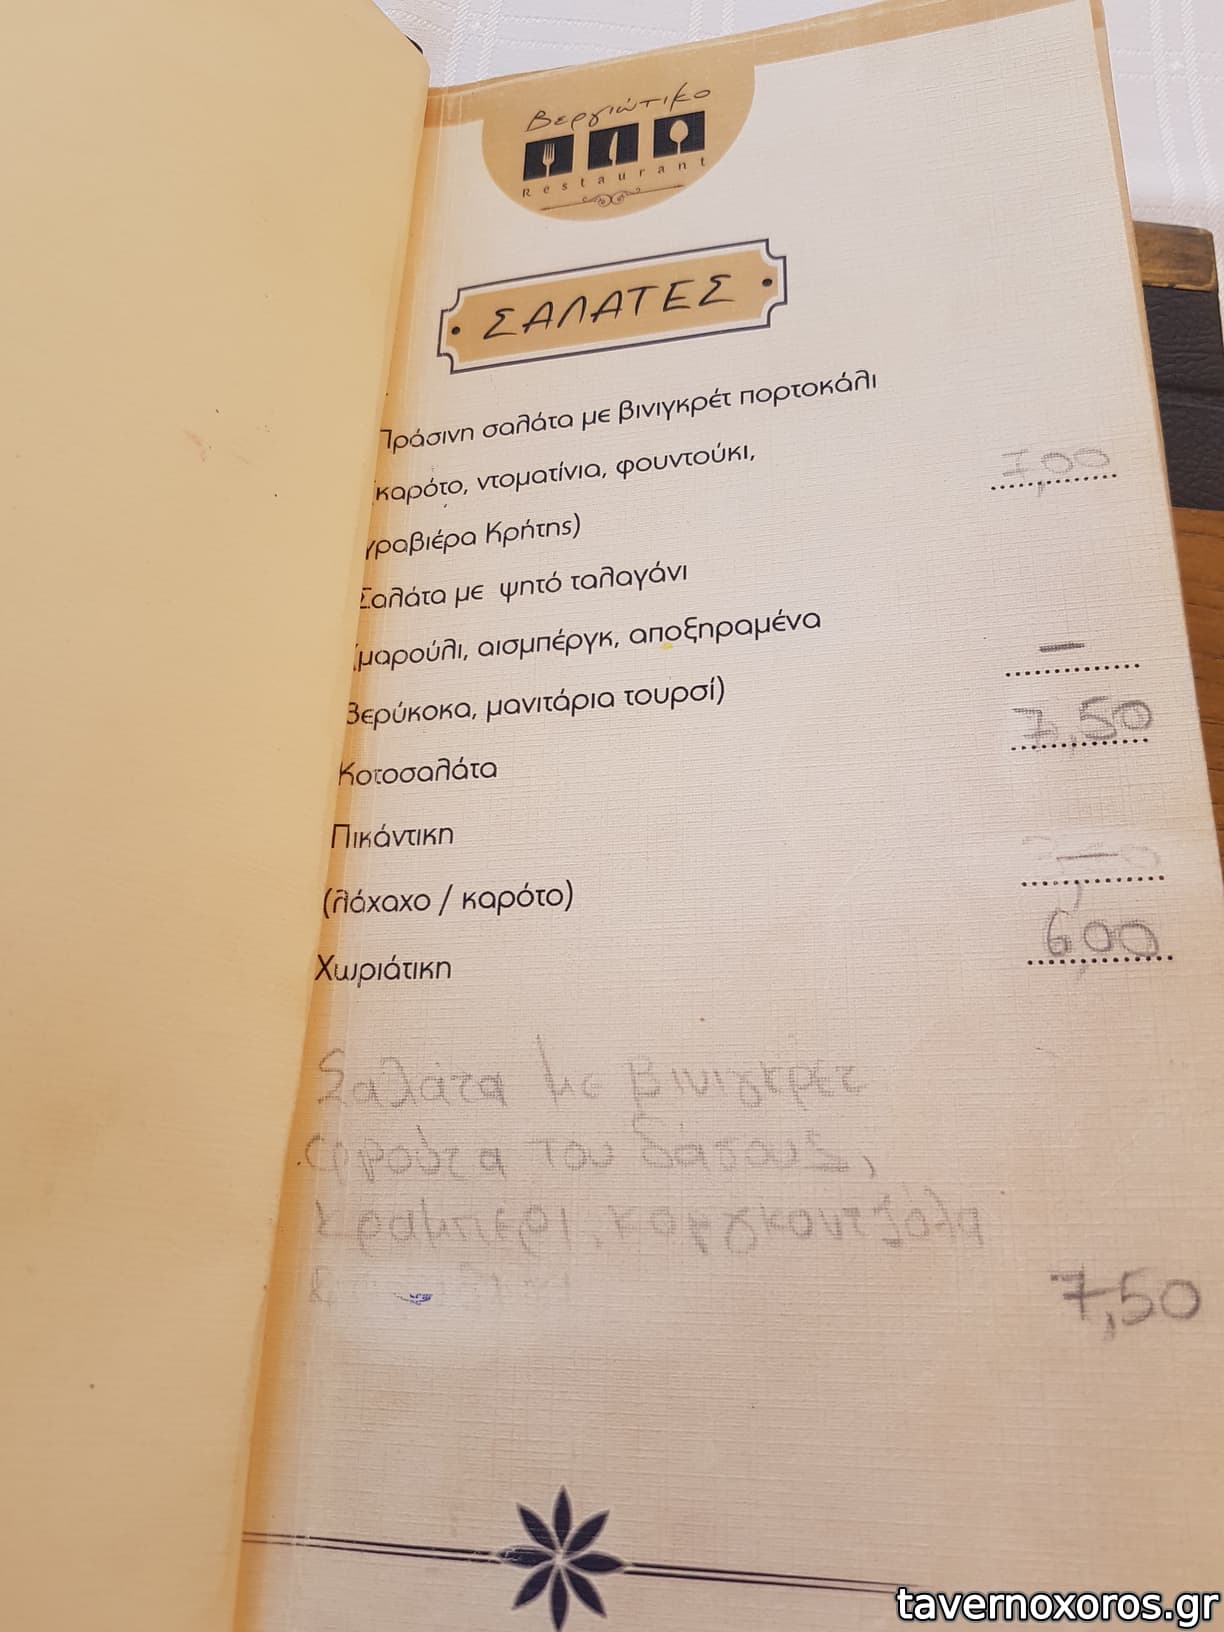 Βεργιώτικο
Restaurant
ΣΑΛΑΤΕΣ
Πράσινη σαλάτα με βινιγκρέτ πορτοκάλι
(καρότο, ντοματίνια, φουντούκι,
7,00
γραβιέρα Κρήτης)
Σαλάτα με ψητό ταλαγάνι
(μαρούλι, αισμπέργκ, αποξηραμένα
—
βερύκοκα, μανιτάρια τουρσί)
7,50
Κοτοσαλάτα
Πικάντικη
—
(λάχαχο / καρότο)
6,00
Χωριάτικη
Σαλάτα με βινιγκρέτ
φρούτα του δάσους,
κραμπερι, κοργκοντζόλα
7,50
tavernoxoros.gr